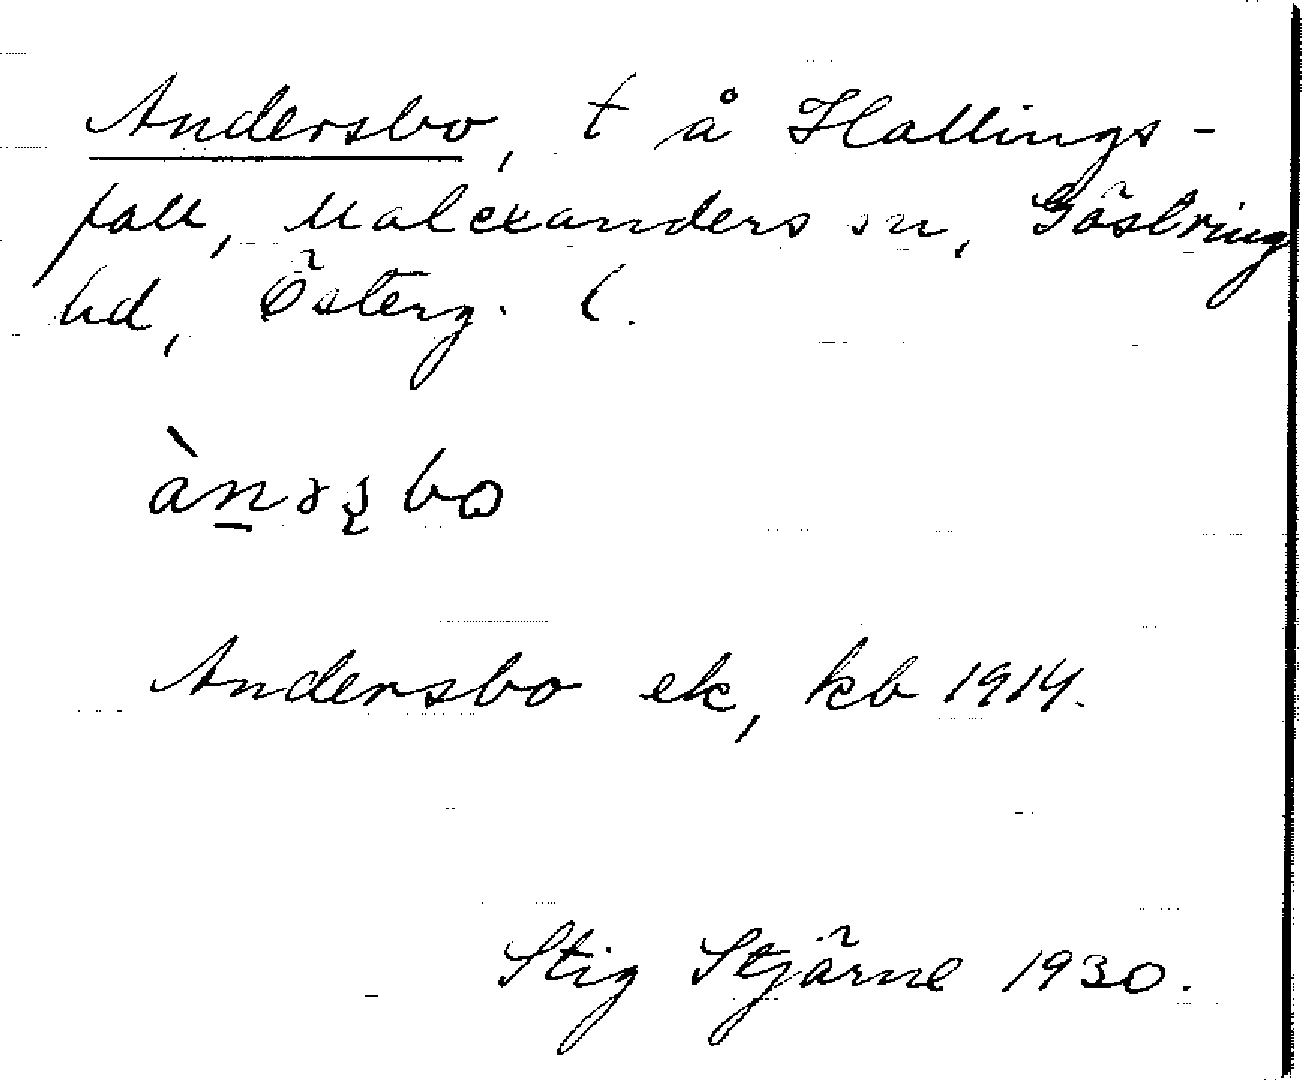 Andersbo, t å Hallings-
fall, Malexanders sn, Göstring
hd, Österg. l.
Andersbo ek, kb 1914.
Stig Stjärne 1930.